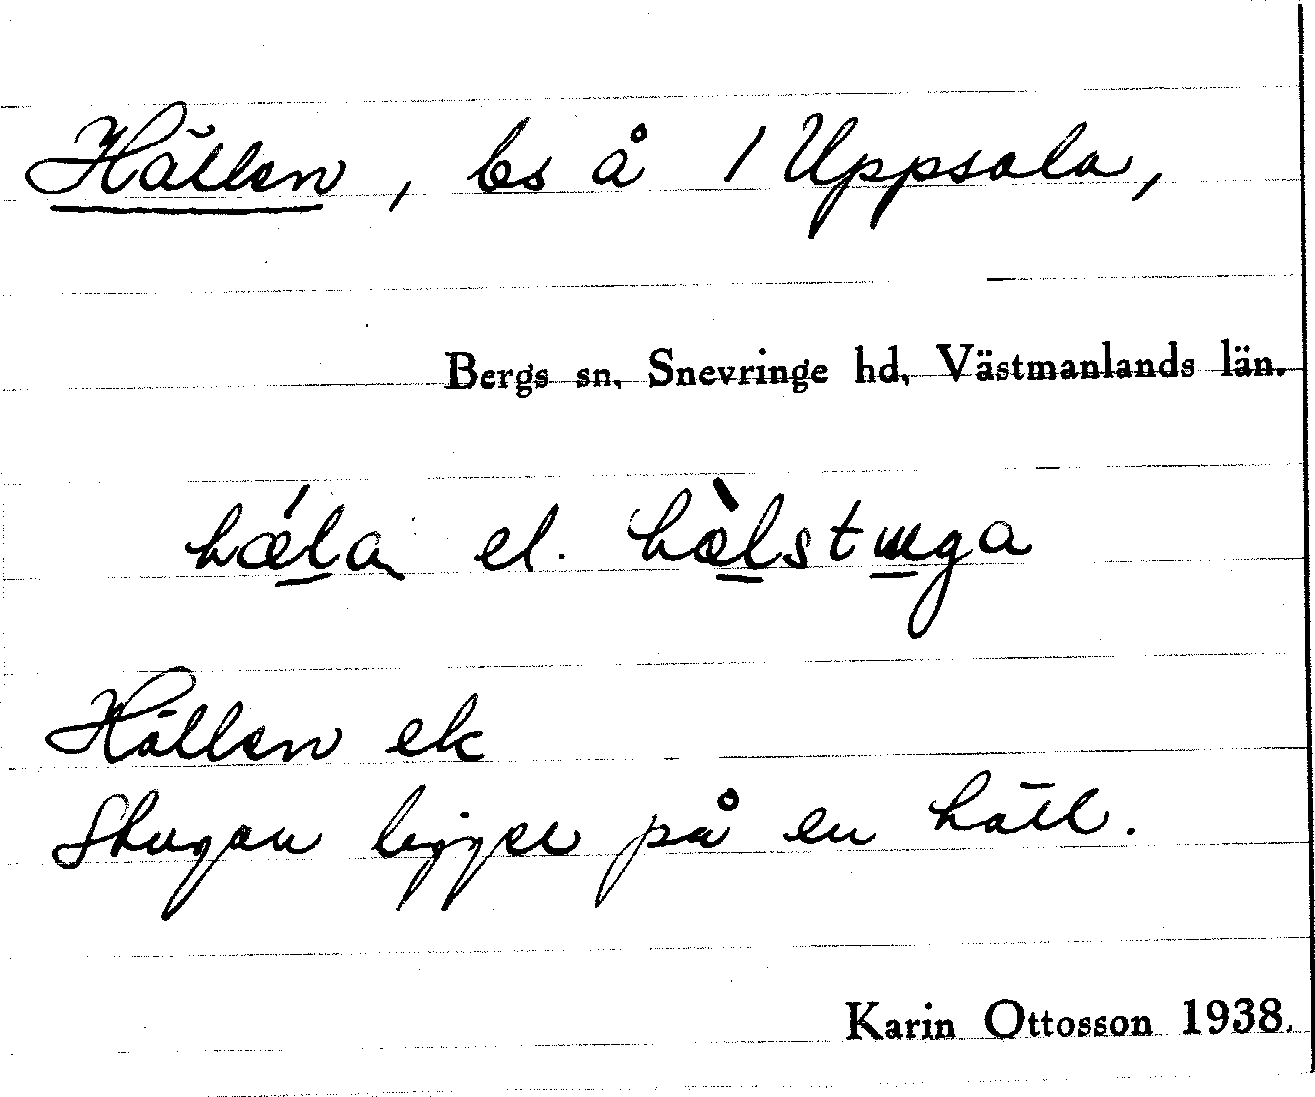 Hällen, bs å 1 Uppsala,
Bergs sn, Snevringe hd, Västmanlands län.
hǽla el. hæ̀lstɯga
Hällen ek
Stugan ligger på en häll.
Karin Ottosson 1938.